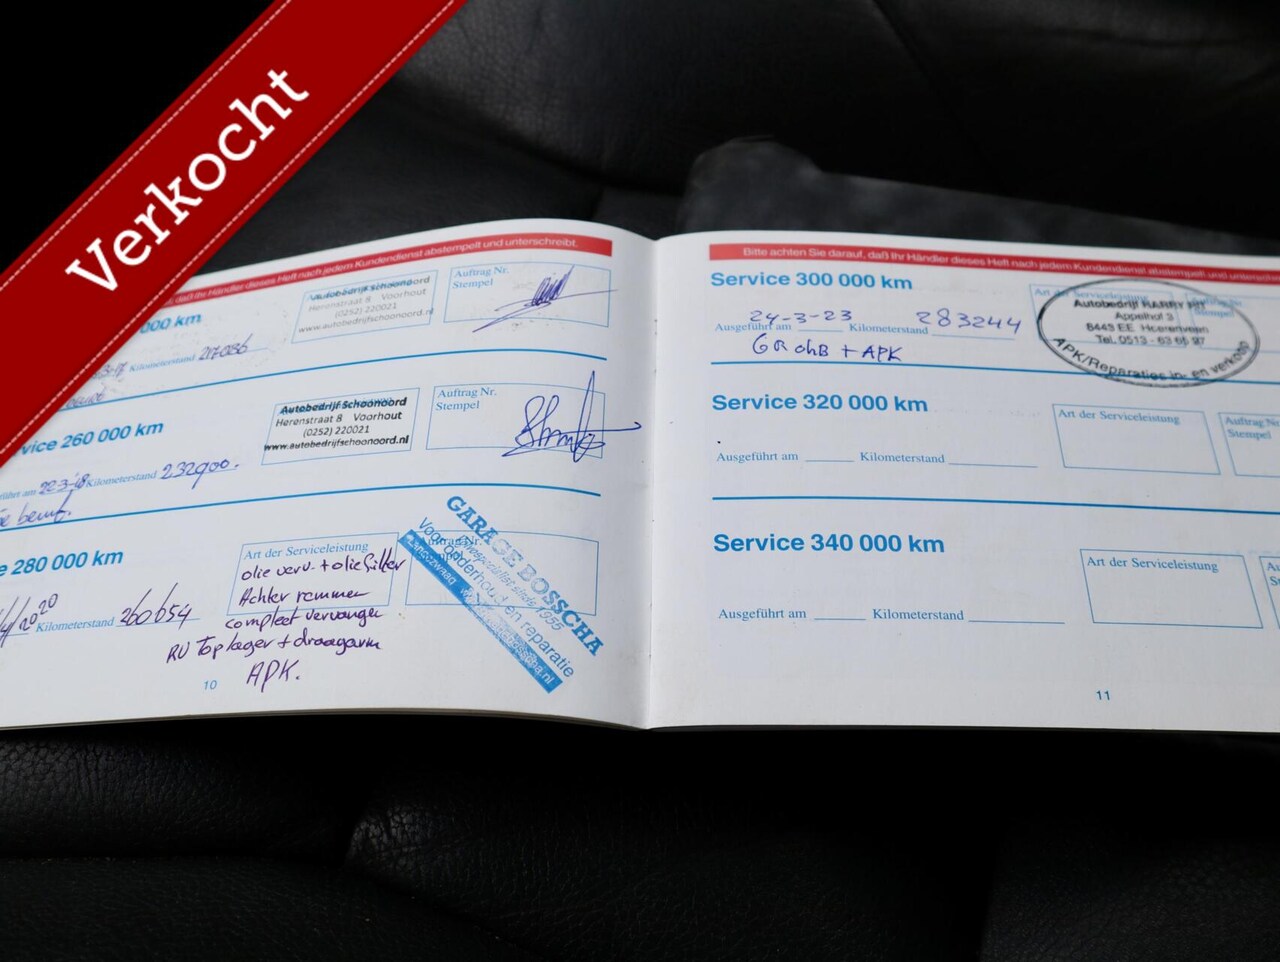 Verkocht
daß Ihr Händler dieses Heft nach jedem Kundendienst abstempelt und unterschreibt.
000 km
Autobedrijf Schoonoord
Herenstraat 8 Voorhout
(0252) 220021
www.autobedrijfschoonoord.nl
Auftrag Nr.
Stempel
Kilometerstand
vice 260 000 km
Autobedrijf Schoonoord
Herenstraat 8 Voorhout
(0252) 220021
www.autobedrijfschoonoord.nl
Auftrag Nr.
Stempel
führt am 22-3-18 Kilometerstand 232900.
e 280 000 km
Art der Serviceleistung
olie verv. + oliefilter
Achter remmen
compleet vervangen
RV Toplager + draagarm
APK.
2020 Kilometerstand 260654
Auftrag Nr.
GARAGE BOSSCHA
Voor onderhoud en reparatie
Langezwaag
sinds 1955
10
Bitte achten Sie darauf, daß Ihr Händler dieses Heft nach jedem Kundendienst abstempelt und
Service 300 000 km
24-3-23 283244
Ausgeführt am Kilometerstand
GR ohB + APK
Art der Serviceleistung
Stempel
Autobedrijf HARRY
Appelhof 3
8443 EE Heerenveen
Tel. 0513 - 63
APK/Reparaties in- en verkoop
Service 320 000 km
Art der Serviceleistung
Auftrag Nr.
Stempel
Ausgeführt am Kilometerstand
Service 340 000 km
Art der Serviceleistung
Ausgeführt am Kilometerstand
11